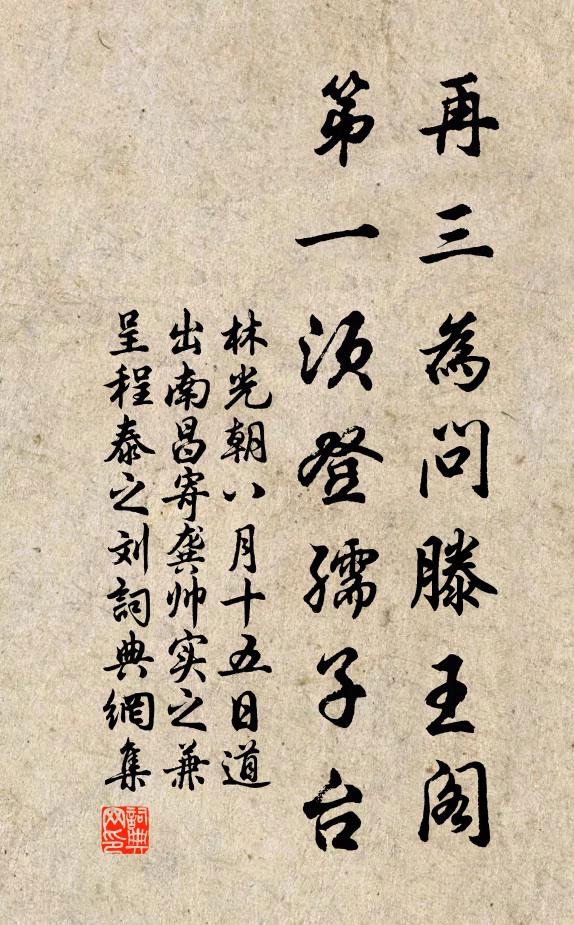 再三為问滕王阁
第一须登孺子台
林光朝八月十五日道
出南昌寄龚帅实之兼
呈程泰之刘詞典網集
詞典网印